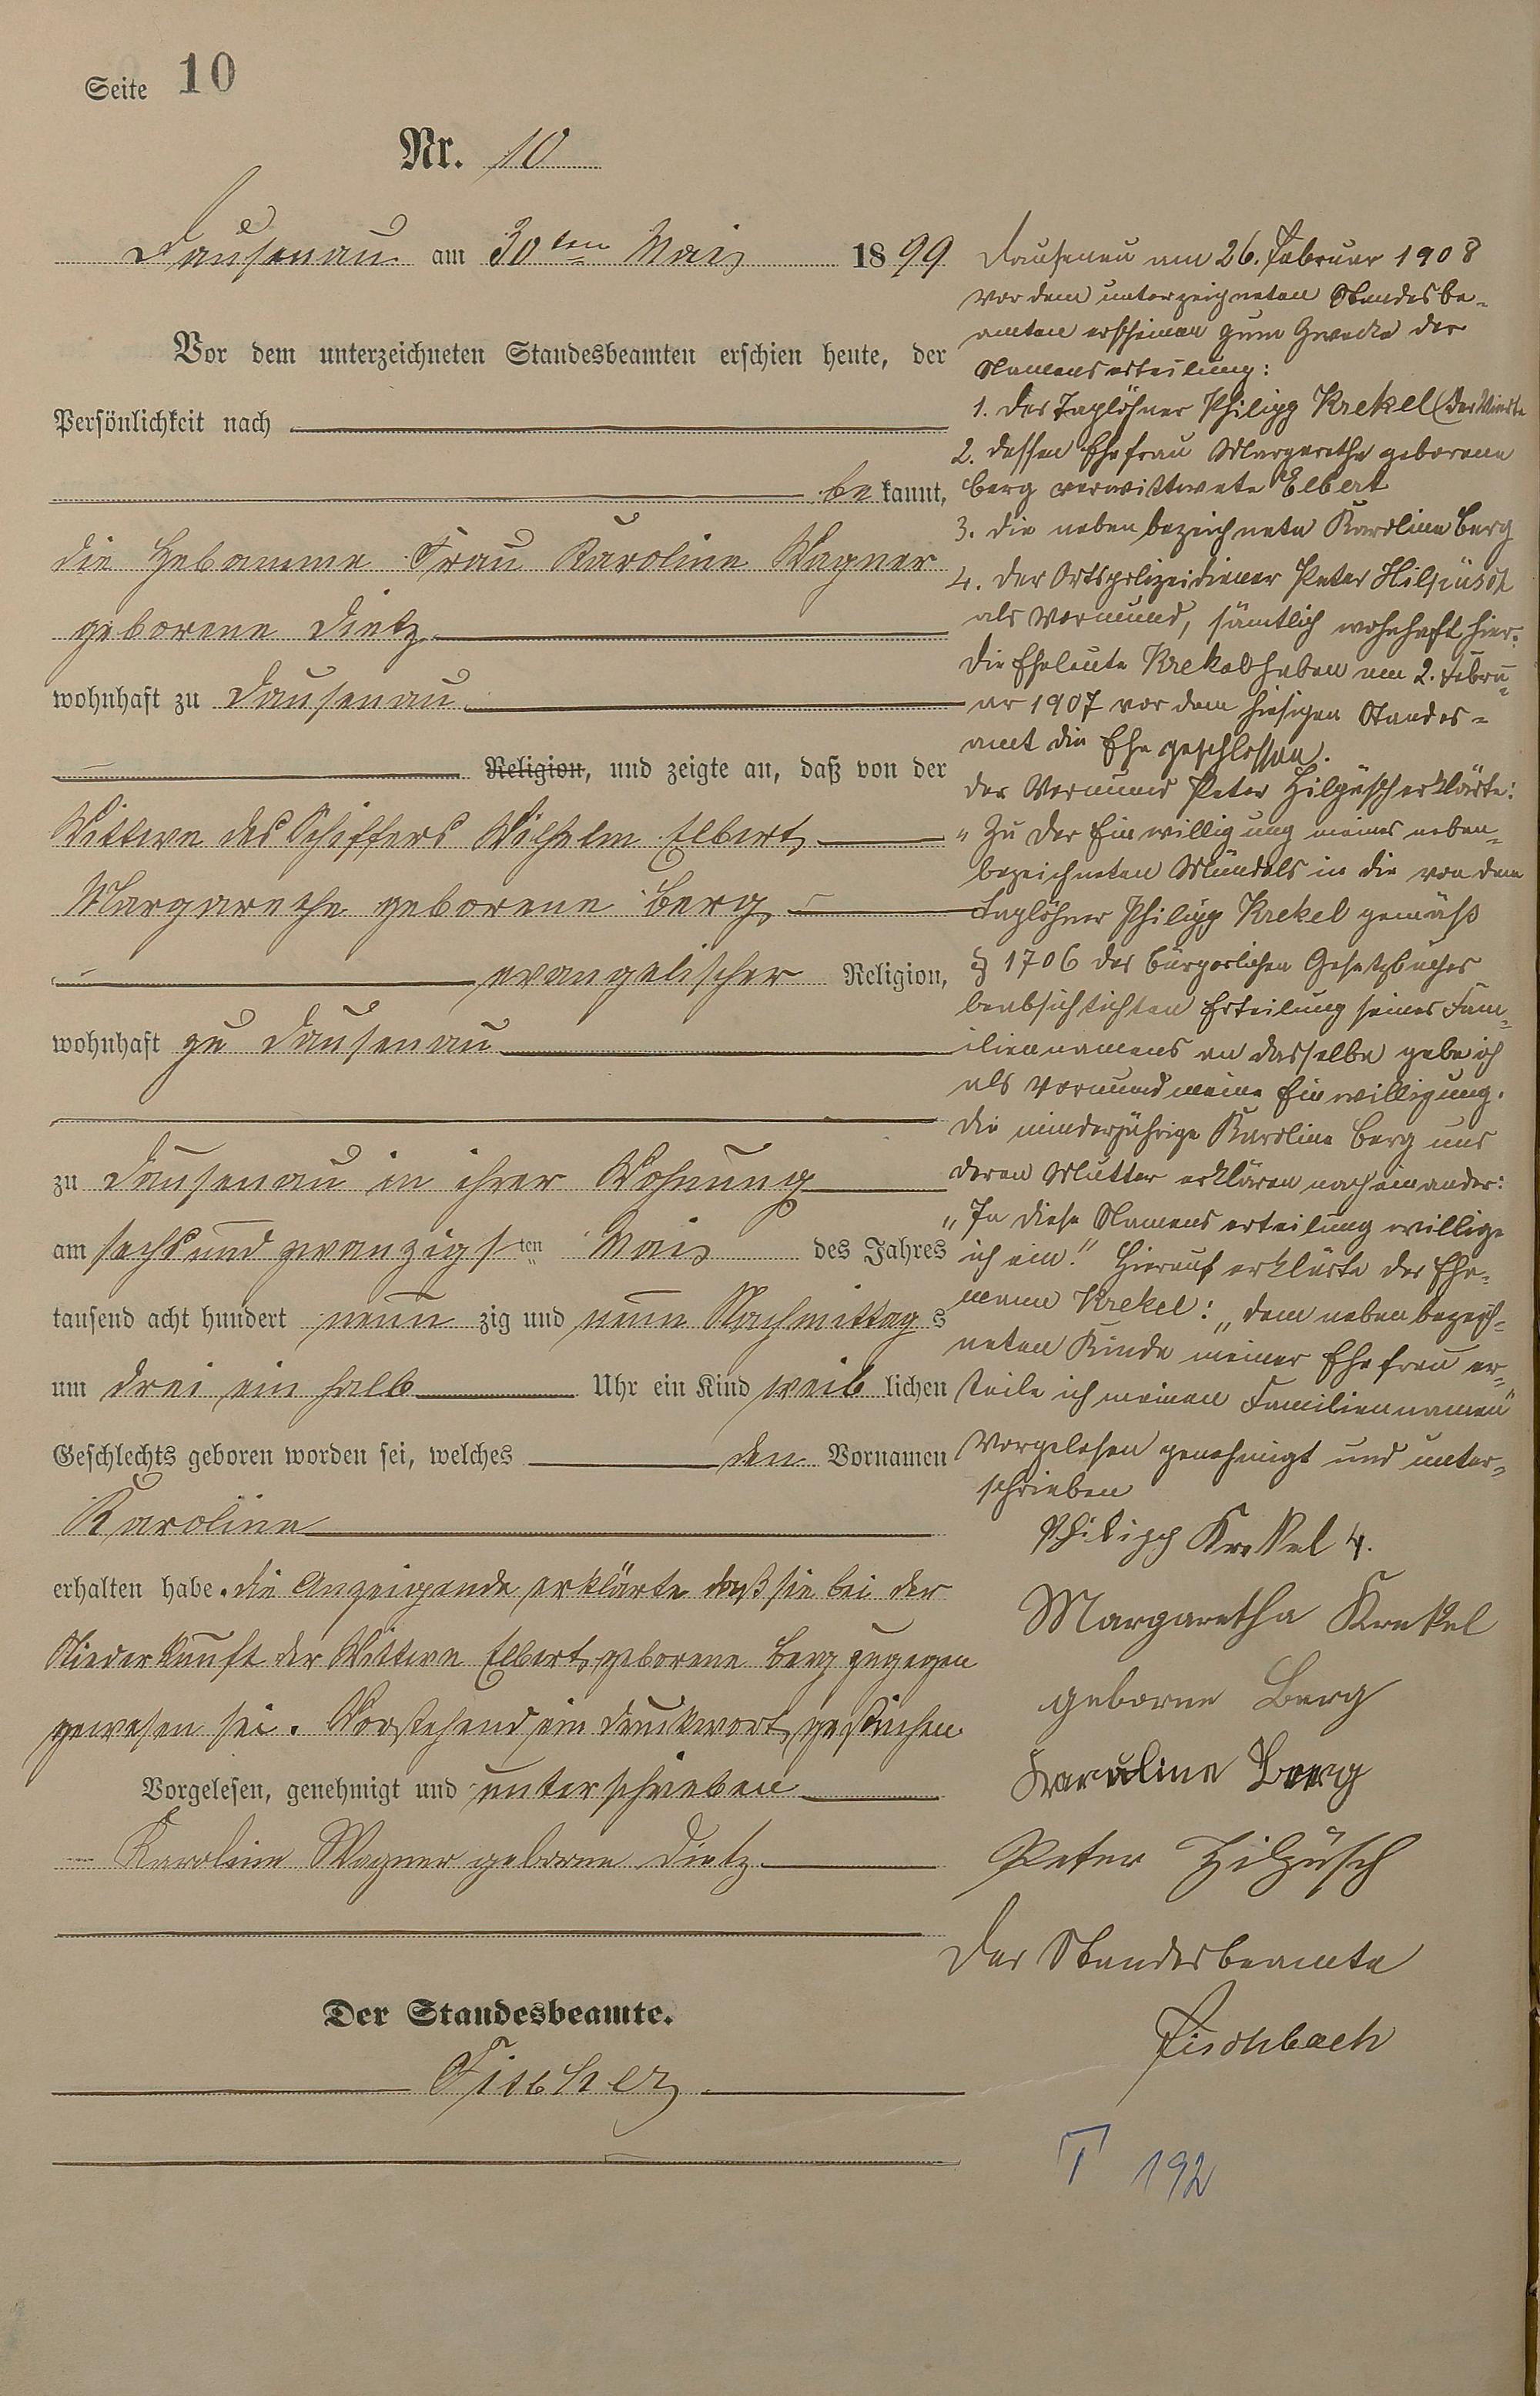 Seite 10
Nr. 10
Dausenau am 30ten Mai 1899
Vor dem unterzeichneten Standesbeamten erschien heute, der
Persönlichkeit nach
be kannt,
die Hebamme Frau Karoline Wagner
geborene Dietz
wohnhaft zu Dausenau
Religion, und zeigte an, daß von der
Wittwe des Schiffers Wilhelm Elbert,
Margarethe geborene Berg,
evangelischer Religion,
wohnhaft zu Dausenau
zu Dausenau in ihrer Wohnung
am sechsundzwanzigsten Mai des Jahres
tausend acht hundert neun zig und neun Nachmittag s
um drei ein halb Uhr ein Kind weib lichen
Geschlechts geboren worden sei, welches den Vornamen
Karoline
erhalten habe. die Anzeigende erklärte daß sie bei der
Niederkunft der Wittwe Elbert, geborene Berg zugegen
gewesen sei. Vorstehend ein Druckwort gestrichen.
Vorgelesen, genehmigt und unterschrieben
Karoline Wagner geborne Dietz
Der Standesbeamte.
Fischer
Dausenau am 26. Februar 1908
vor dem unterzeichneten Standesbe-
amten erschienen zum Zwecke der
Namenserteilung:
1. der Taglöhner Philipp Krekel (der Vierte
2. dessen Ehefrau Margarethe geborene
Berg verwittwete Elbert
3. die nebenbezeichnete Karoline Berg
4. der Ortspolizeidiener Peter Hilpüsch
als Vormund, sämtlich wohnhaft hier.
Die Eheleute Krekel haben am 2. Febru-
ar 1907 vor dem hiesigen Standes-
amt die Ehe geschlossen.
der Vormund Peter Hilpüsch erklärte:
„Zu der Einwilligung meines neben-
bezeichneten Mündels in die von dem
Taglöhner Philipp Krekel gemäß
§ 1706 des Bürgerlichen Gesetzbuches
beabsichtichten Erteilung seines Fam-
iliennamens an dasselbe gebe ich
als Vormund meine Einwilligung.
Die minderjährige Karoline Berg und
deren Mutter erklären nacheinander:
„In diese Namenserteilung willige
ich ein." Hierauf erklärte der Ehe-
mann Krekel: „dem nebenbezeich-
neten Kinde meiner Ehefrau er-
teile ich meinen Familiennamen"
Vorgelesen genehmigt und unter-
schrieben
Philipp Krekel 4.
Margaretha Krekel
geborne Berg
Karoline Berg
Peter Hilpüsch
Der Standesbeamte
Fischbach
T 192